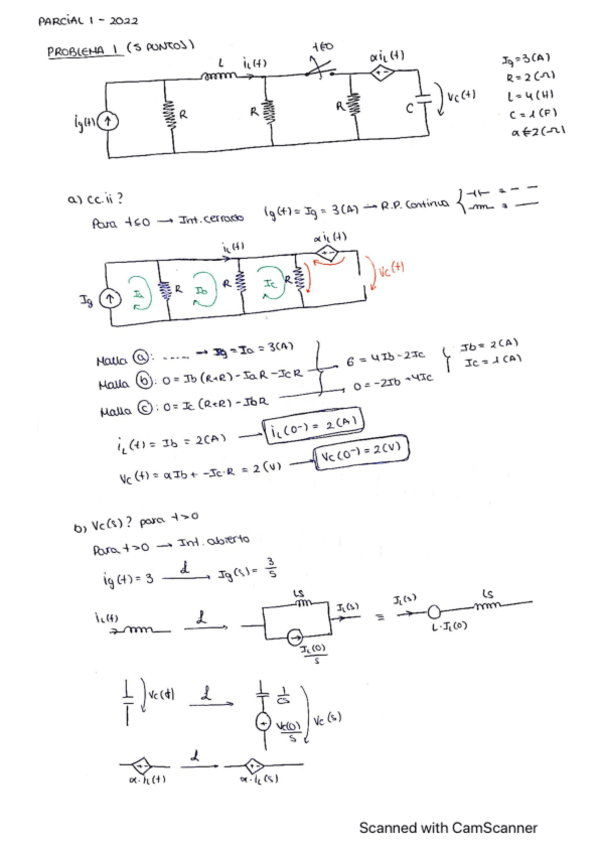 PARCIAL 1 - 2022
PROBLEMA 1 (5 PUNTOS)
L iL(t) t=0 αiL(t)
ig(t) R R R C Vc(t)
Ig = 3(A)
R = 2(Ω)
L = 4(H)
C = 1(F)
α = 2(Ω)
a) cc.ii?
Para t≤0 → Int. cerrado ig(t) = Ig = 3(A) → R.P. Continua
iL(t) αiL(t)
Ig Ia R Ib R Ic R Vc(t)
Malla (a): ..... → Ig = Ia = 3(A)
Malla (b): 0 = Ib(R+R) - IaR - IcR
Malla (c): 0 = Ic(R+R) - IbR
6 = 4Ib - 2Ic
0 = -2Ib + 4Ic
Ib = 2(A)
Ic = 1(A)
iL(t) = Ib = 2(A) → iL(0⁻) = 2(A)
Vc(t) = αIb + -Ic·R = 2(V) → Vc(0⁻) = 2(V)
b) Vc(s)? para t>0
Para t>0 → Int. abierto
ig(t) = 3 L→ Ig(s) = 3/s
iL(t) L→ Ls IL(0)/s IL(s) ≡ IL(s) L·IL(0) Ls
Vc(t) L→ 1/Cs Vc(0)/s Vc(s)
α·iL(t) L→ α·IL(s)
Scanned with CamScanner